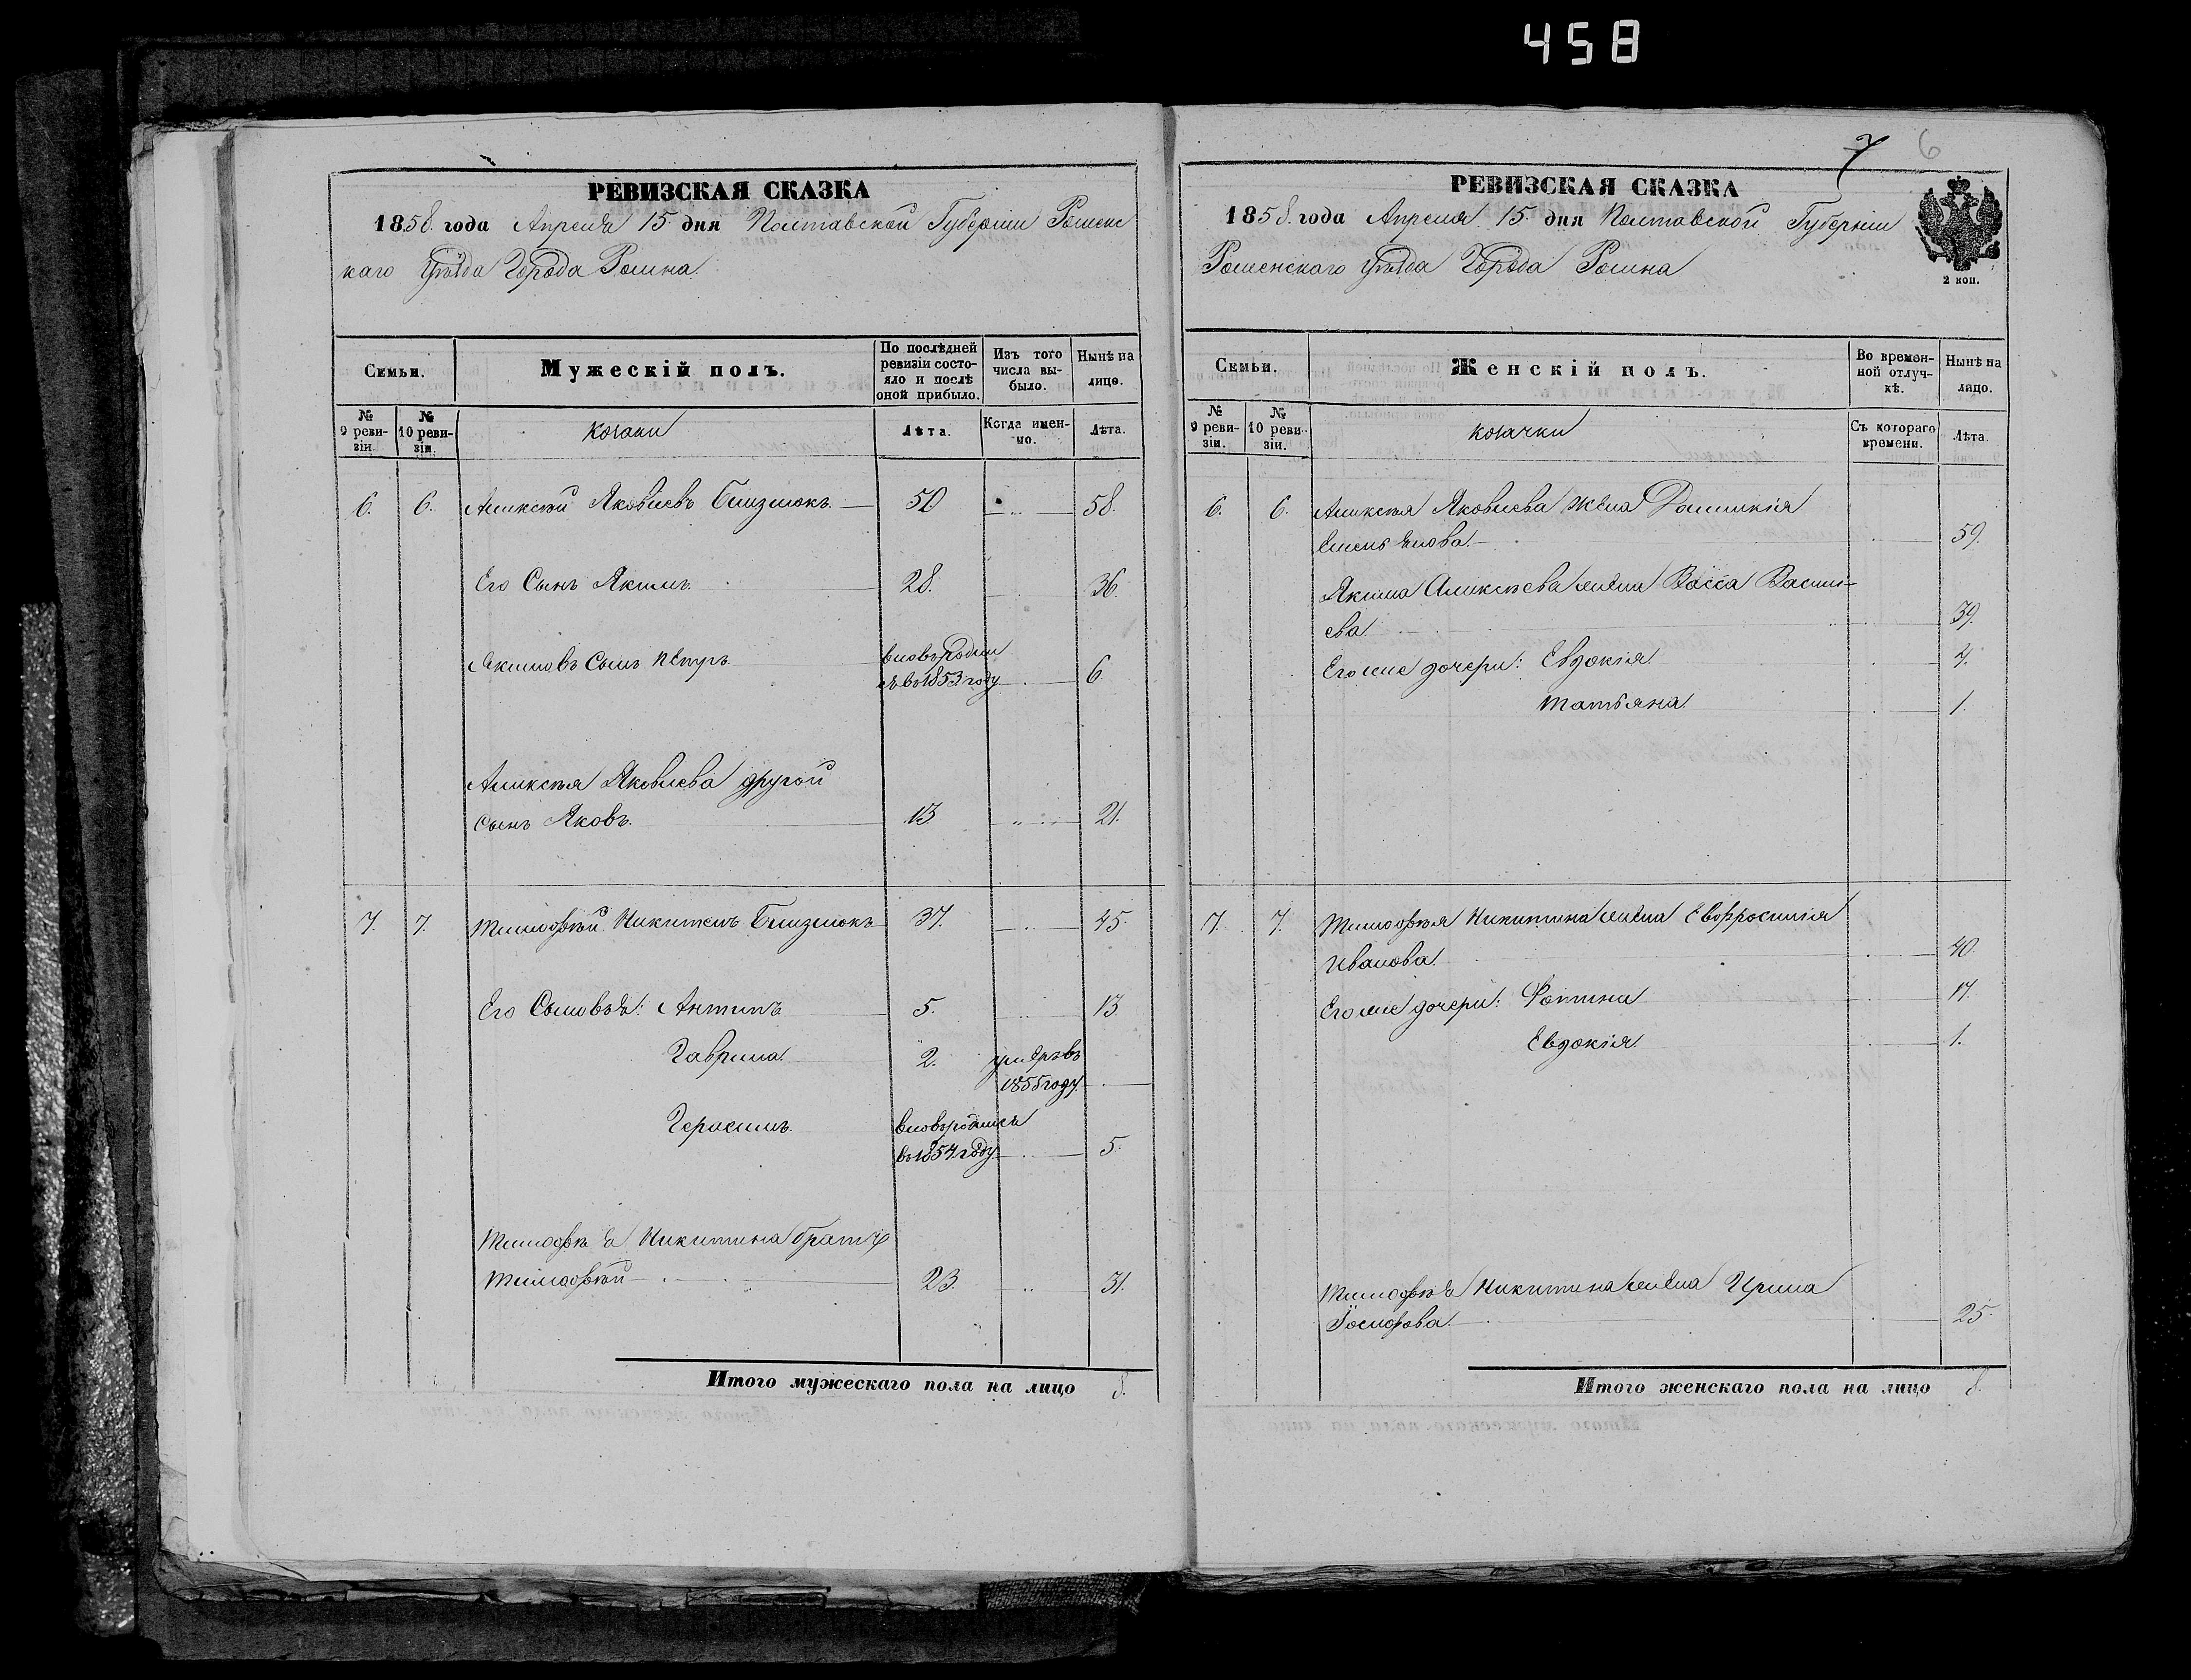 458
7 6
РЕВИЗСКАЯ СКАЗКА
1858. года Апреля 15 дня Полтавской Губерніи Роменс
каго Уѣзда Города Ромна.
Семьи.
Мужескій полъ.
По послѣдней ревизіи состояло и послѣ оной прибыло.
Изъ того числа выбыло.
Нынѣ на лицо.
№ 9 ревизіи.
№ 10 ревизіи.
козаки
Лѣта.
Когда именно.
Лѣта.
6. 6. Аликсѣй Яковлевъ Близнюкъ 50 58.
Его Сынъ Якимъ 28. 36.
Якимовъ Сынъ Петръ вновьродил
ся въ 1853 году 6.
Аликсѣя Яковлева другой
Сынъ Яковъ. 13 21.
7. 7. Тимофѣй Никитинъ Близнюкъ 37. 45.
Его Сыновья: Антипъ 5. 13.
Гаврила 2. умеръ въ
1855 году
Герасимъ вновьродился
въ 1854 году 5.
Тимофѣя Никитина братъ
Тимофѣй 23. 31.
Итого мужескаго пола на лицо 8.
РЕВИЗСКАЯ СКАЗКА
1858. года Апреля 15. дня Полтавской Губерніи
Роменскаго Уѣзда Города Ромна
2 коп.
Семьи.
Женскій полъ.
Во временной отлучкѣ.
Нынѣ на лицо.
№ 9 ревизіи.
№ 10 ревизіи.
козачки
Съ котораго времени.
Лѣта.
6. 6. Аликсѣя Яковлева жена
Емельянова. 59.
Якима Аликсѣева жена Васса Васил-
ева 39.
Его же дочери: Евдокія
Татьяна. 1.
7. 7. Тимофѣя Никитина жена Евфросинія
Иванова. 40.
Его же дочери: 17.
Евдокія 1.
Тимофѣя Никитина жена Ирина
Іосифова. 25.
Итого женскаго пола на лицо 8.